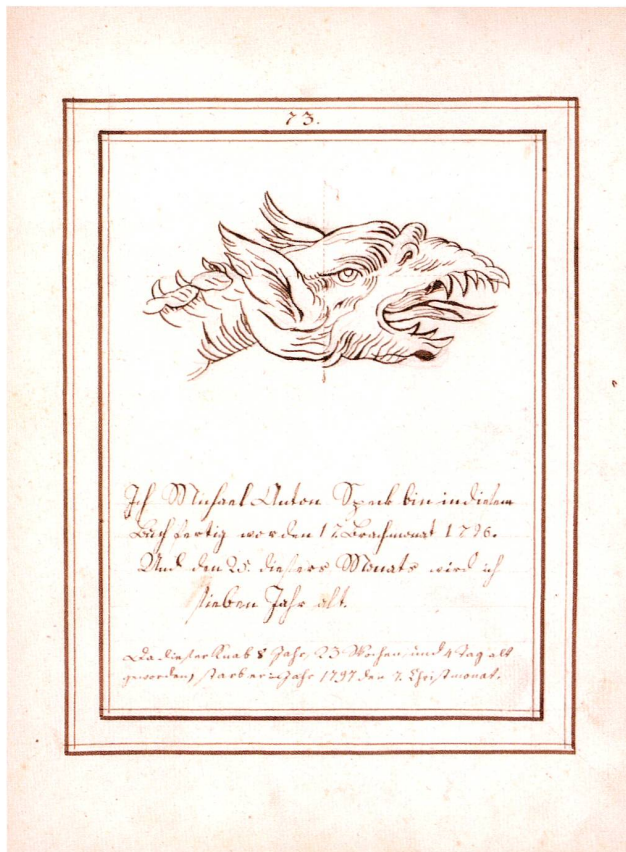 73.
Ich Michael Anton Speck bin in diesem
Buch fertig worden 17. Brachmonat 1796.
Und den 25. dieses Monats wird ich
sieben Jahr alt.
Da dieser Knab 8 Jahr, 23 Wochen, und 4 Tag alt
geworden, starb er im Jahr 1797 den 7. Christmonat.